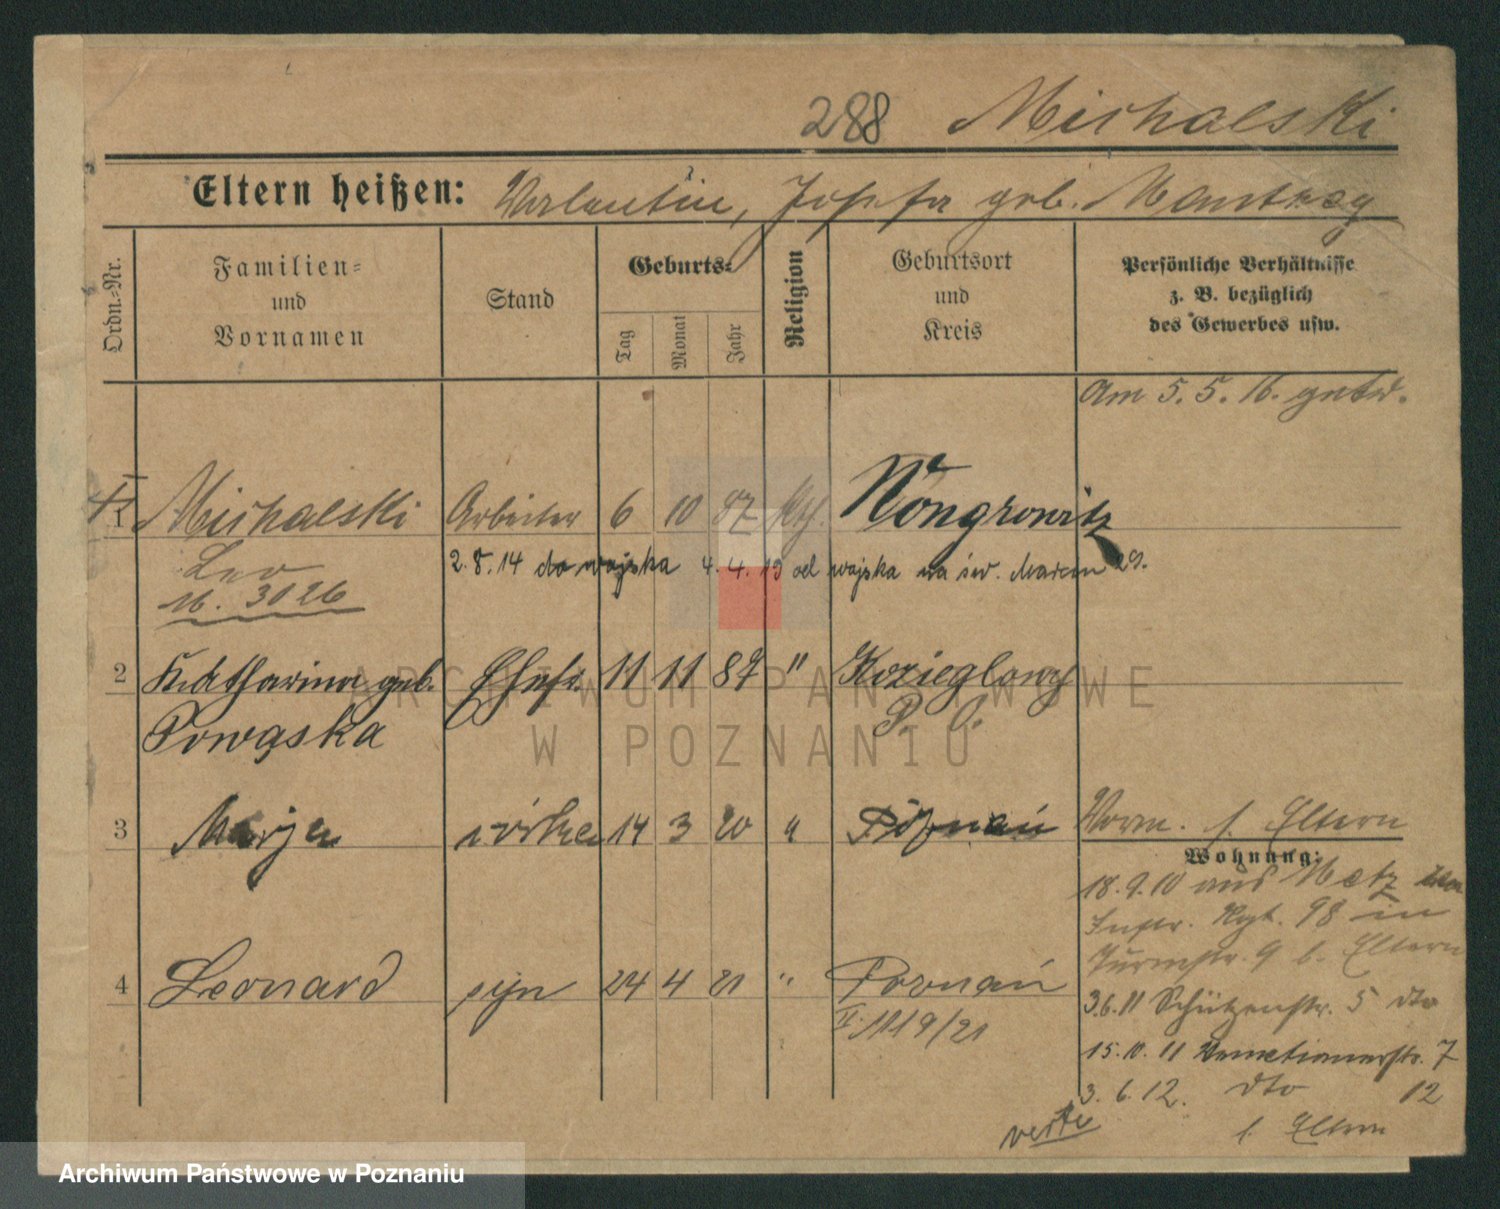 288 Michalski
Eltern heißen: Valentin, Josefa geb. Mantzey
Ordn.-Nr.
Familien- und Vornamen
Stand
Geburts-
Tag
Monat
Jahr
Religion
Geburtsort und Kreis
Persönliche Verhältnisse
z. B. bezüglich
des Gewerbes usw.
Am 5. 5. 16.
1 Michalski Arbeiter 6 10 87 kth. Wongrowitz
Leo
2.8.14 do wojska 4.4.19 od wojska na św. Marcin 29.
16. 3026
2 Katharina geb. Ehefr. 11 11 89 " Kozieglowy
Powąska P. O.
3 Marja córka 14 3 20 " Poznań
Vorm. s. Eltern
Wohnung:
18.9.10 aus Metz
Inftr. Rgt. 98 in
Turmstr. 9 b. Eltern
4 Leonard syn 24 4 21 " Poznań
3.6.11 Schützenstr. 5 dto
II. 1119/21
15.10.11 Venetianerstr. 7
3.6.12. dto 12
verte
s. Eltern
ARCHIWUM PAŃSTWOWE
W POZNANIU
Archiwum Państwowe w Poznaniu